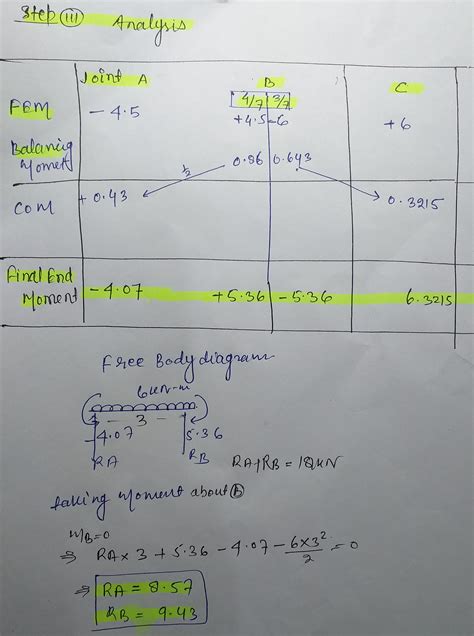 Step (iii) Analysis
Joint A B C
4/7 3/7
FEM - 4.5 +4.5 -6 +6
Balancing Moment 0.86 0.643
1/2
COM + 0.43 0.3215
Final End Moment -4.07 +5.36 -5.36 6.3215
Free Body diagram
6kN-m
- 3 -
4.07 5.36
RA RB RA+RB = 18kN
taking Moment about B
MB=0
⇒ RA × 3 + 5.36 - 4.07 - 6×3²/2 = 0
⇒ RA = 8.57
RB = 9.43